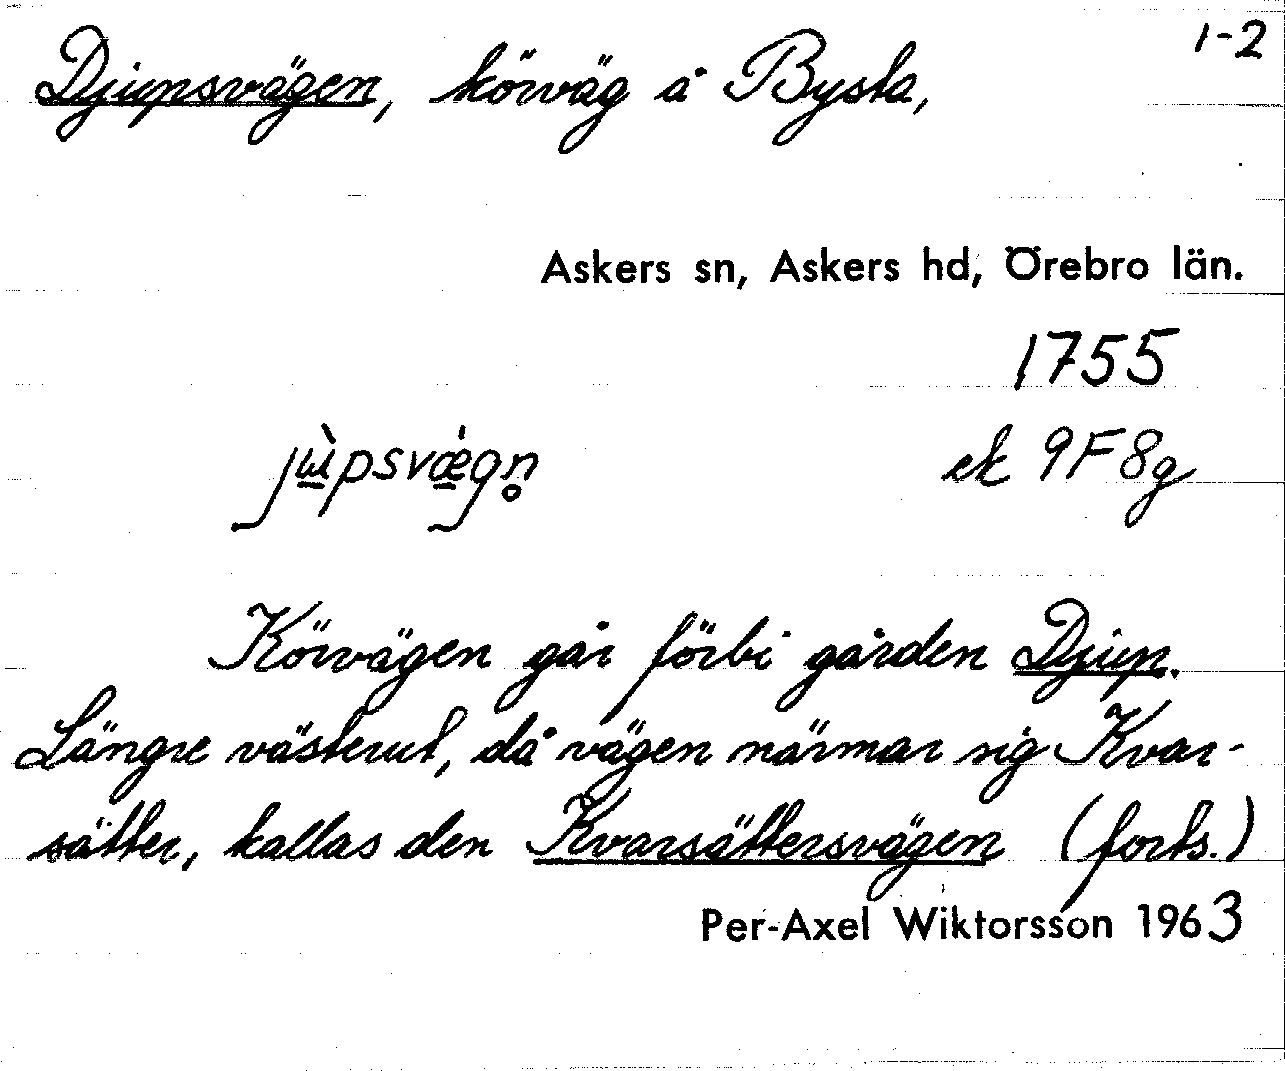 1-2
Djupsvägen, körväg å Bysta,
Askers sn, Askers hd, Örebro län.
1755
jɯ̀psvǽgn̥ ek 9F8g
Körvägen går förbi gården Djup.
Längre västerut, då vägen närmar sig Kvar-
sätter, kallas den Kvarsättersvägen (forts.)
Per-Axel Wiktorsson 1963